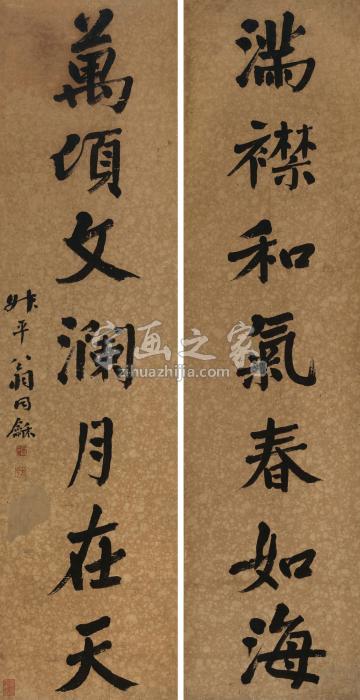 滿襟和氣春如海
萬頃文瀾月在天
叔平翁同龢
字画之家
zihuazhijia.com